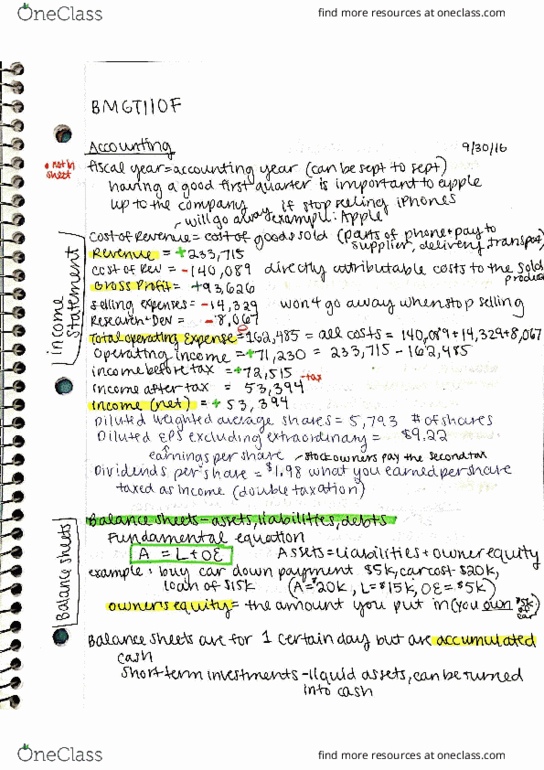 OneClass
find more resources at oneclass.com
BMGT110F
Accounting
9/30/16
• not in sheet
fiscal year = accounting year (can be sept to sept)
having a good first quarter is important to apple
up to the company
if stop selling iphones
will go away
example: Apple
Cost of Revenue = cost of goods sold (parts of phone + pay to
supplier, delivery, transport)
Income Statement
Revenue = +233,715
cost of Rev = -140,089 directly attributable costs to the sold
product
Gross Profit = +93,626
selling expenses = -14,329 won't go away when stop selling
Research + Dev = -8,067
Total operating Expense = 162,485 = all costs = 140,089+14,329+8,067
Operating income = +71,230 = 233,715 - 162,485
income before tax = +72,515
-tax
income after tax = 53,394
income (net) = +53,394
Diluted weighted average shares = 5,793 # of shares
Diluted EPS excluding extraordinary = $9.22
earnings per share
stock owners pay the second tax
Dividends per share = $1.98 what you earned per share
taxed as income (double taxation)
Balance sheets
Balance sheets - assets, liabilities, debts
Fundamental equation
A = L + OE
Assets = liabilities + owner equity
example: buy car down payment $5k, car cost $20k,
loan of $15k (A=$20k, L=$15k, OE=$5k)
owners equity = the amount you put in (you own $5k of car
Balance sheets are for 1 certain day but are accumulated
cash
Short term investments - liquid assets, can be turned
into cash
OneClass
find more resources at oneclass.com